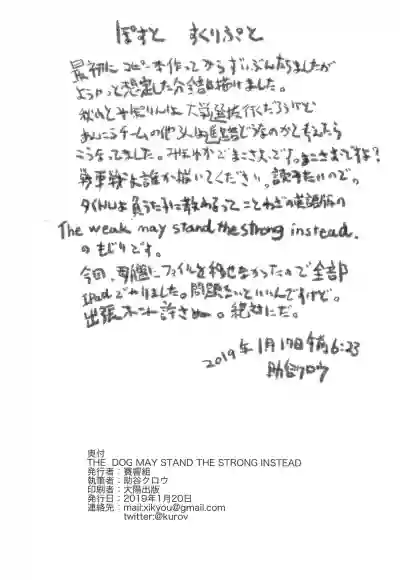 ぽすと すくりぷと
最初にコピー本作ってからずいぶんたちましたが
ようやっと想定した分全部描けました。
秋山と
大学選抜行くだろうけど
あんこうチームの他3人は進路どうなのかと考えたら
こうなってました。みほゆかでまこさおです。まこさおですよ?
誰か描いてください。読みたいので。
タイトルは負うた子に教わるってことわざの英語版の
The weak may stand the strong instead.
のもじりです。
今回、母艦にファイルを移せなかったので全部
iPadでやりました。問題ないといいんですけど。
出張 許さぬー。絶対にだ。
2019年1月17日午前6:23
助谷クロウ
奥付
THE DOG MAY STAND THE STRONG INSTEAD
発行者:賽響組
執筆者:助谷クロウ
印刷者:大陽出版
発行日:2019年1月20日
連絡先:mail:xikyou@gmail.com
twitter:@kurov